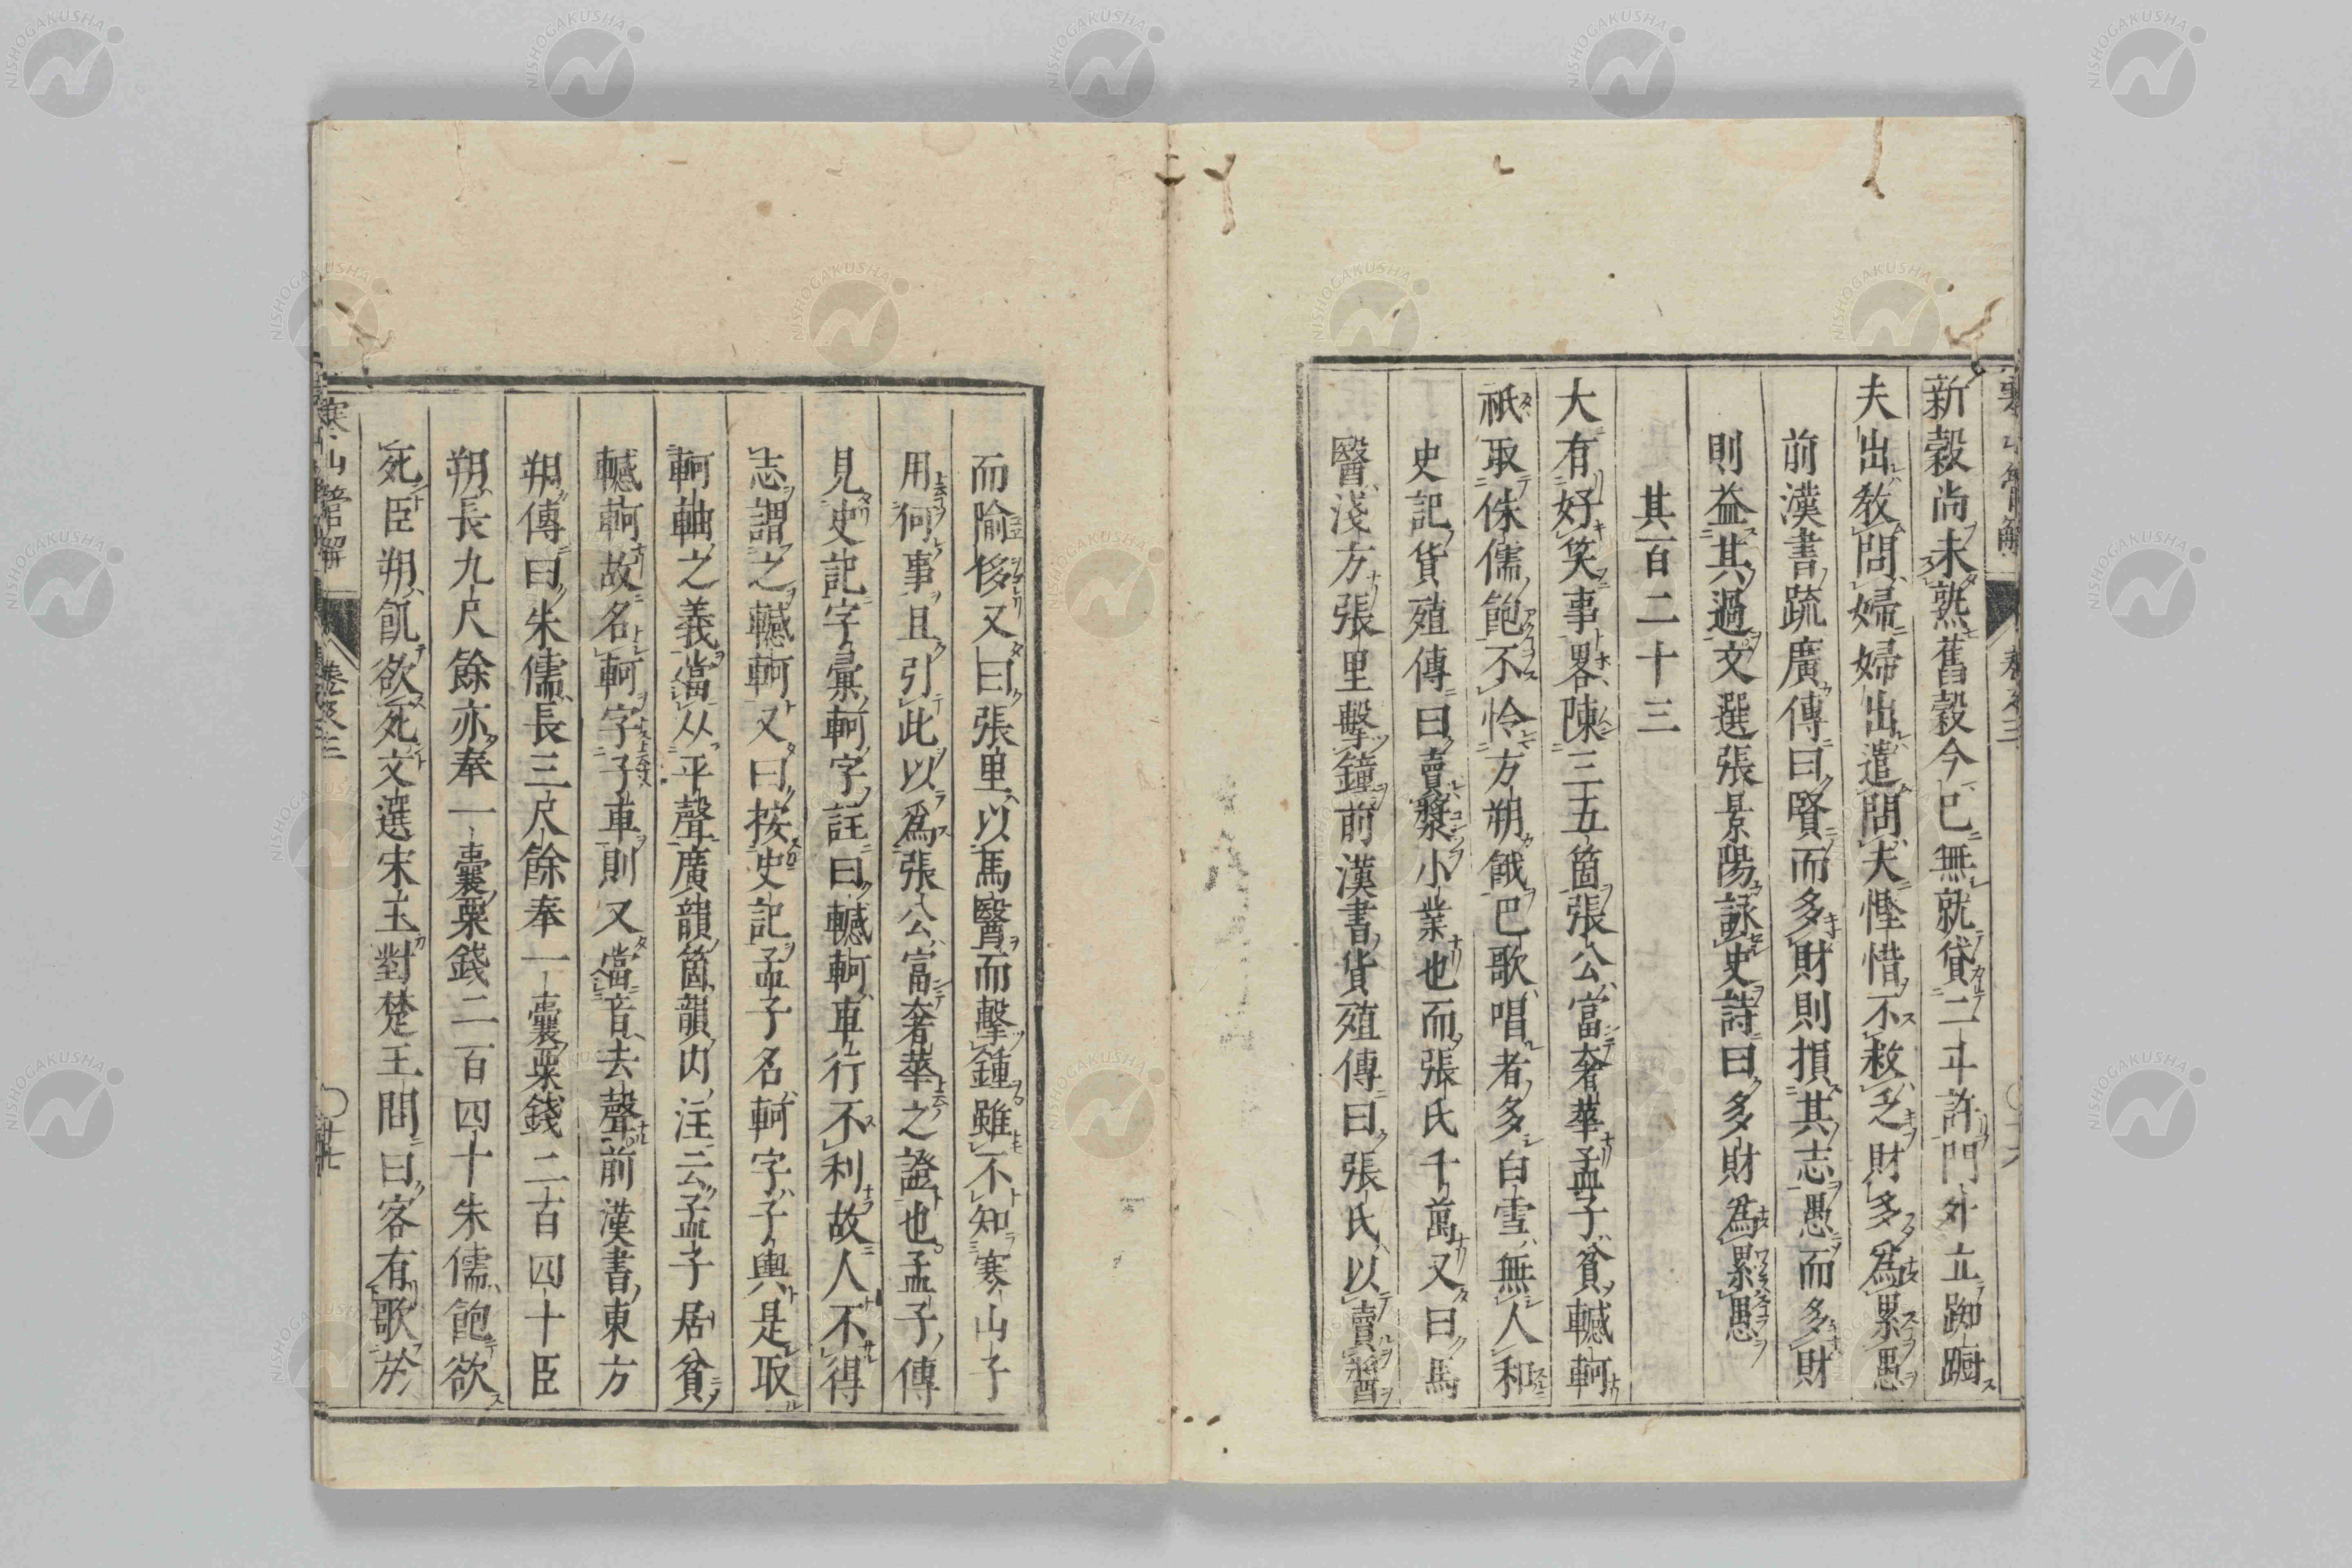 新穀尚未熟舊穀今已無就貸一斗許門外立踟蹰
夫出敎問婦婦出遣問夫慳惜不救乏財多為累愚
前漢書䟽廣傳曰賢而多財則損其志愚而多財
則益其過文選張景陽詠史詩曰多財為累愚
其百二十三
大有好笑事畧陳三五箇張公富奢華孟子貧轗軻
祇取侏儒飽不怜方朔餓巴歌唱者多白雪無人和
史記貨殖傳曰賣漿小業也而張氏千萬又曰馬
醫淺方張里擊鐘前漢書貨殖傳曰張氏以賣醬
而隃侈又曰張里以馬醫而擊鍾雖不知寒山子
用何事且引此以為張公富奢華之證也孟子傳
見史記字彙軻字註曰轗軻車行不利故人不得
志謂之轗軻又曰按史記孟子名軻字子輿是取
軻軸之義當从平聲廣韻箇韻内注云孟子居貧
轗軻故名軻字子車則又當音去聲前漢書東方
朔傳曰朱儒長三尺餘奉一囊粟錢二百四十臣
朔長九尺餘亦奉一囊粟錢二百四十朱儒飽欲
死臣朔飢欲死文選宋玉對楚王問曰客有歌於
寒山詩管解
卷之三
NISHOGAKUSHA